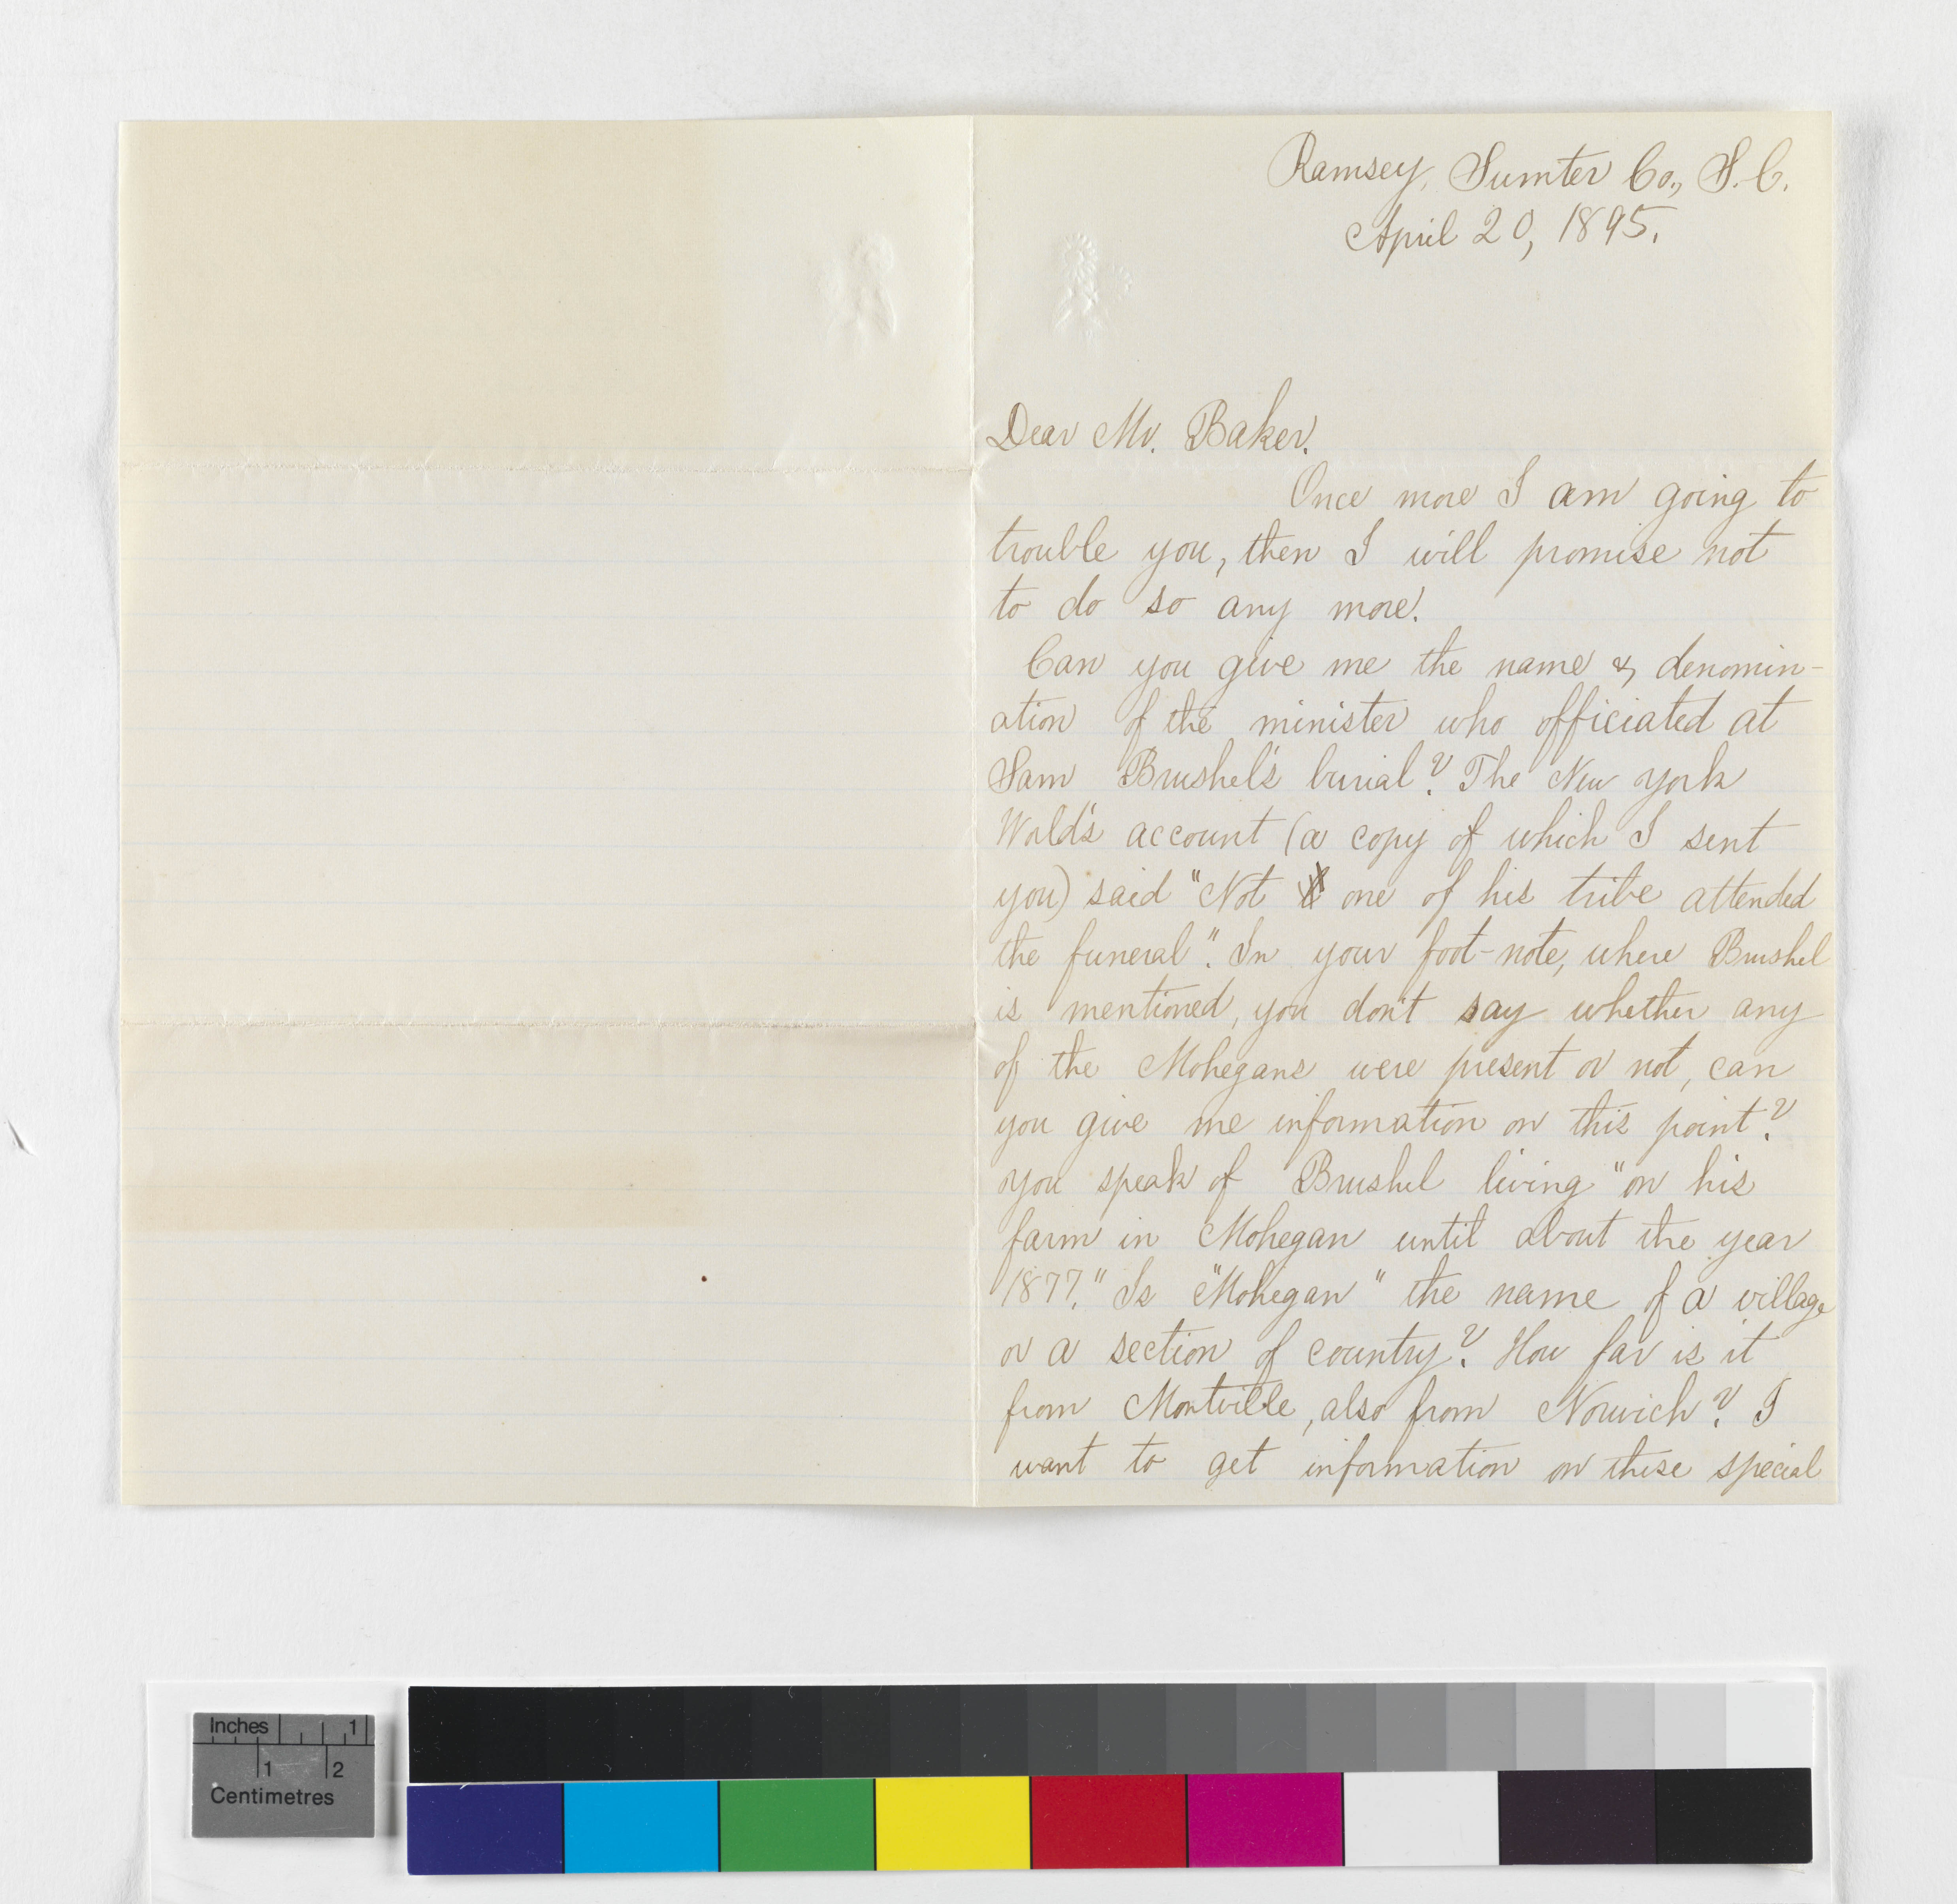 Ramsey, Sumter Co., S.C.
April 20, 1895.
Dear Mr. Baker.
Once more I am going to
trouble you, then I will promise not
to do so any more.
Can you give me the name & denomin-
ation of the minister who officiated at
Sam Brushel's burial? The New York
World's account (a copy of which I sent
you) said "Not one of his tribe attended
the funeral". In your foot-note, where Brushel
is mentioned, you don't say whether any
of the Mohegans were present or not, can
you give me information on this point?
You speak of Brushel living "on his
farm in Mohegan until about the year
1877." Is "Mohegan" the name of a village
or a section of country? How far is it
from Montville, also from Norwich? I
want to get information on these special
Inches 1
1 2
Centimetres